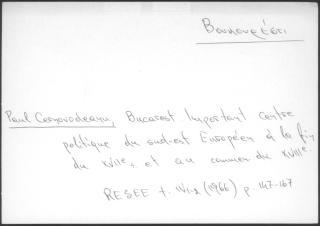 Paul Cernovodeanu, Bucarest Important centre
politique du sud-est Européen à la fin
du XVIIe s. et au commen. du XVIIIe.
RESEE t. IV 1-2 (1966) p. 147-167